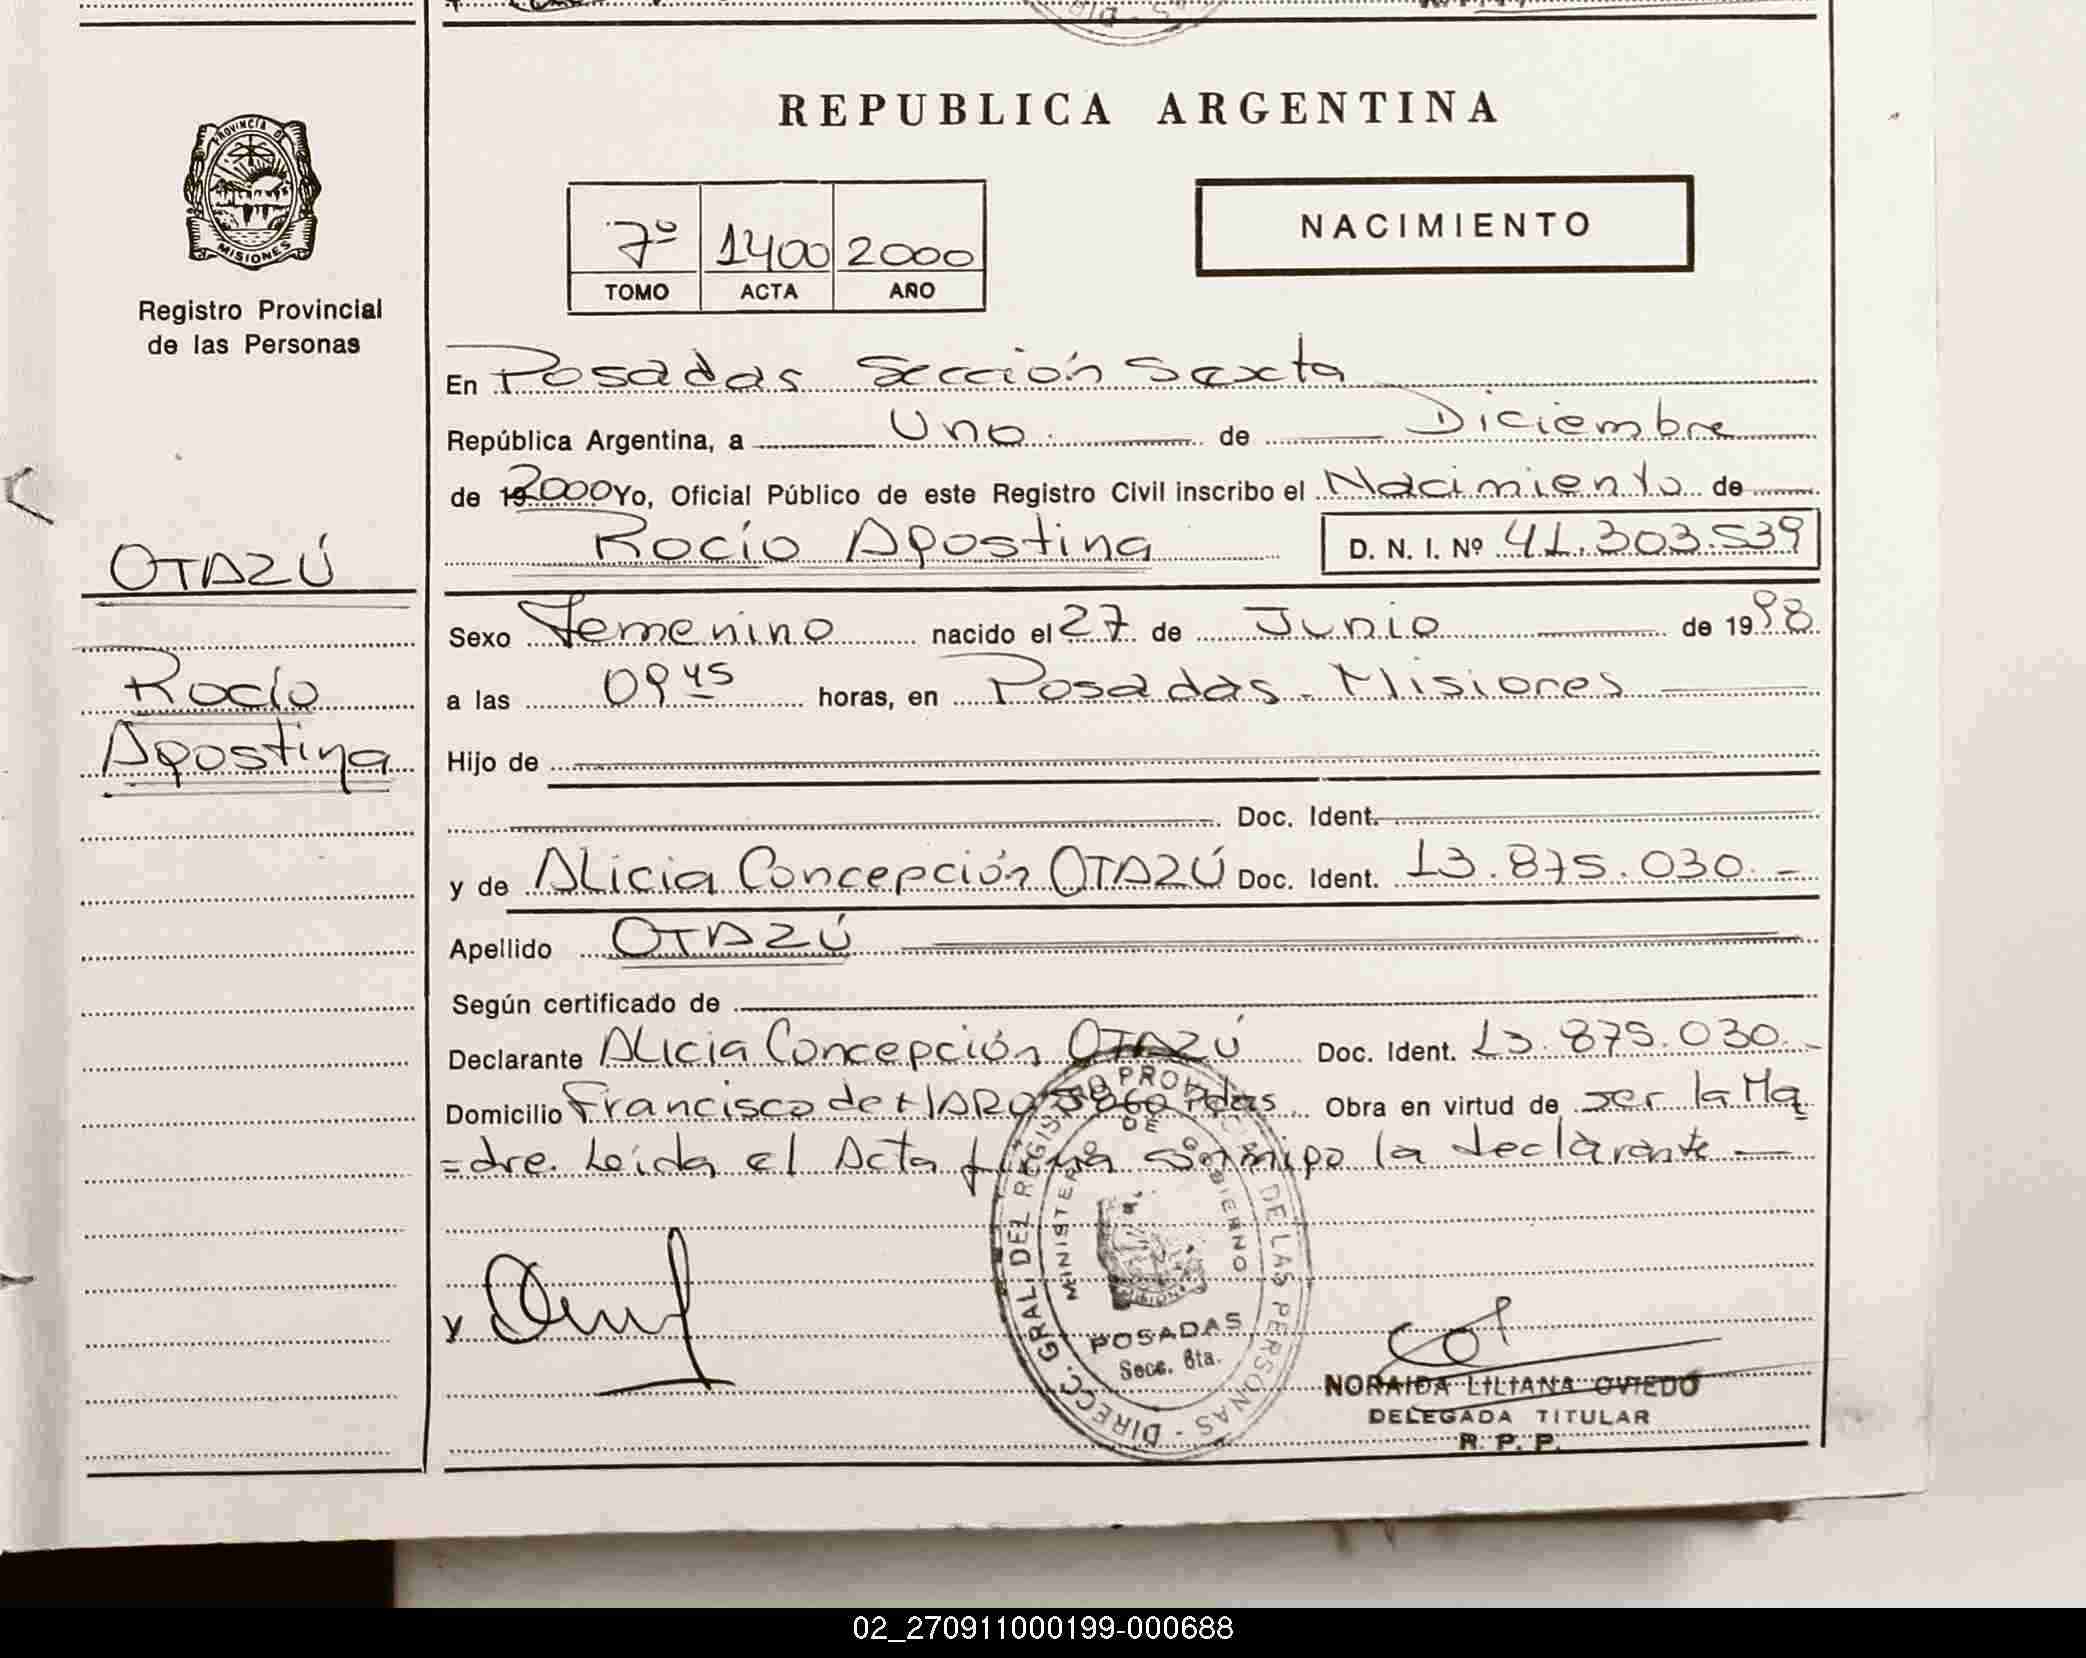 REPUBLICA ARGENTINA
PROVINCIA DE
MISIONES
Registro Provincial
de las Personas
7º 1400 2000
TOMO ACTA AÑO
NACIMIENTO
En Posadas Sección Sexta
República Argentina, a Uno de Diciembre
de 19 2000 Yo, Oficial Público de este Registro Civil inscribo el Nacimiento de
Rocío Agostina D. N. I. Nº 41.303.539
OTAZÚ
Rocío
Agostina
Sexo Femenino nacido el 27 de Junio de 1998
a las 09 45 horas, en Posadas - Misiones
Hijo de
Doc. Ident.
y de Alicia Concepción OTAZÚ Doc. Ident. 13.875.030.-
Apellido OTAZÚ
Según certificado de
Declarante Alicia Concepción OTAZÚ Doc. Ident. 13.875.030.-
Domicilio Francisco de HARO Pdas Obra en virtud de ser la Ma
=dre. Leída el Acta firma conmigo la declarante
DIRECC. GRAL. DEL REGISTRO PROVINCIAL DE LAS PERSONAS
MINISTERIO DE GOBIERNO
MISIONES
POSADAS
Secc. 6ta.
NORAIDA LILIANA OVIEDO
DELEGADA TITULAR
R. P. P.
02_270911000199-000688